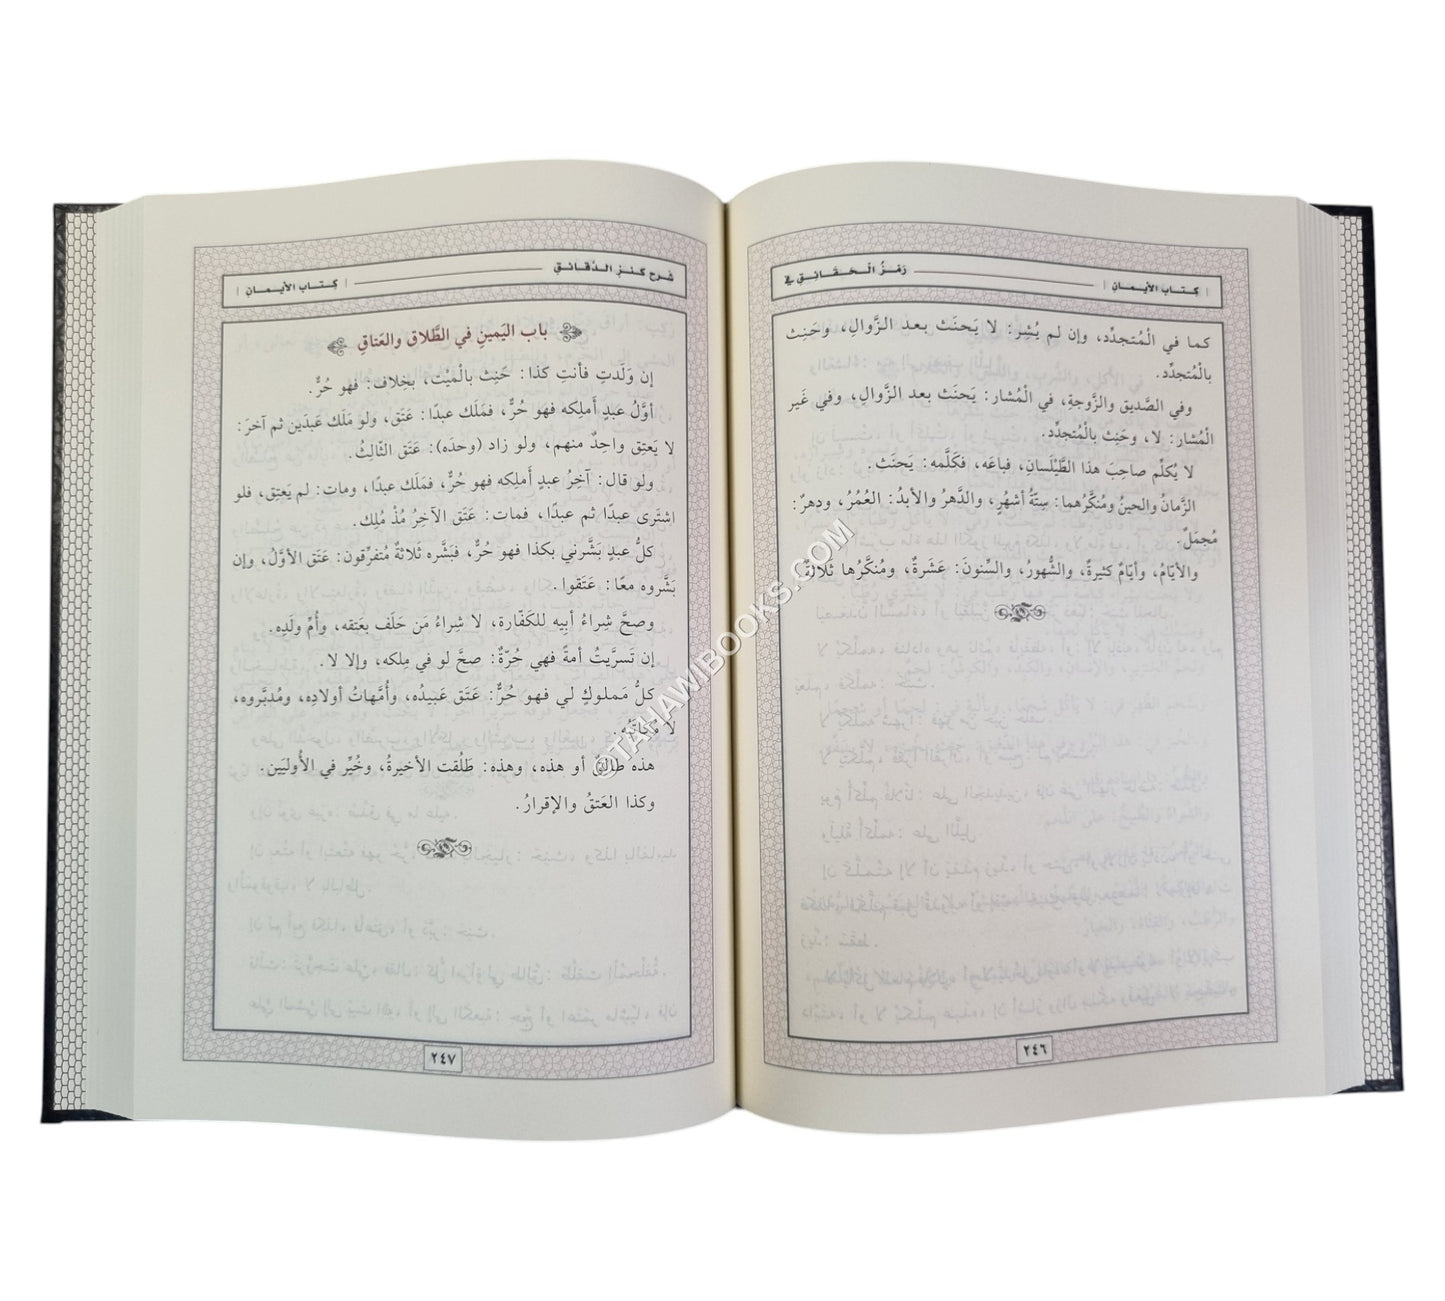 كتاب الأيمان
رَمْزُ الْحَقَائِقِ في
كما في الْمُتجدِّد، وإن لم يُشِر: لا يَحنَث بعد الزَّوالِ، وحَنِث
بالْمُتجدِّد.
وفي الصَّديق والزَّوجةِ، في الْمُشار: يَحنَث بعد الزَّوالِ، وفي غَير
الْمُشار: لا، وحَنِث بالْمُتجدِّد.
لا يُكلِّم صاحِبَ هذا الطَّيْلَسانِ، فباعَه، فكَلَّمه: يَحنَث.
الزَّمانُ والحينُ ومُنكَّرهما: سِتَّةُ أشهُرٍ، والدَّهرُ والأبدُ: العُمُرُ، ودهرٌ:
مُجمَلٌ.
والأيّامُ، وأيّامٌ كثيرةٌ، والشُّهورُ، والسِّنونَ: عَشَرةٌ، ومُنكَّرُها ثلاثةٌ.
٢٤٦
شرح كنز الدقائق
كتاب الأيمان
باب اليَمينِ في الطَّلاقِ والعَتاقِ
إن وَلَدتِ فأنتِ كذا: حَنِث بالْميْتِ، بخِلاف: فهو حُرٌّ.
أوَّلُ عبدٍ أَملِكه فهو حُرٌّ، فمَلَك عبدًا: عَتَق، ولو مَلَك عَبدَين ثم آخرَ:
لا يَعتِق واحِدٌ منهم، ولو زاد (وحدَه): عَتَق الثّالِثُ.
ولو قال: آخِرُ عبدٍ أَملِكه فهو حُرٌّ، فمَلَك عبدًا، ومات: لم يَعتِق، فلو
اشتَرى عبدًا ثم عبدًا، فمات: عَتَق الآخِرُ مُذْ مُلِك.
كلُّ عبدٍ بَشَّرني بكذا فهو حُرٌّ، فبَشَّره ثَلاثةٌ مُتفرِّقون: عَتَق الأوَّلُ، وإن
بَشَّروه معًا: عَتَقوا.
وصحَّ شِراءُ أبيه للكَفّارة، لا شِراءُ مَن حَلَف بعَتقه، وأُمِّ ولَدِه.
إن تَسرَّيتُ أمةً فهي حُرّةٌ: صحَّ لو في مِلكه، وإلا لا.
كلُّ مَملوكٍ لي فهو حُرٌّ: عَتَق عَبيدُه، وأُمَّهاتُ أولادِه، ومُدبَّروه،
لا مُكاتَبُه.
هذه طالقٌ أو هذه، وهذه: طَلُقت الأخيرةُ، وخُيِّر في الأُوليَين.
وكذا العَتقُ والإقرارُ.
٢٤٧
©TAHAWIBOOKS.COM